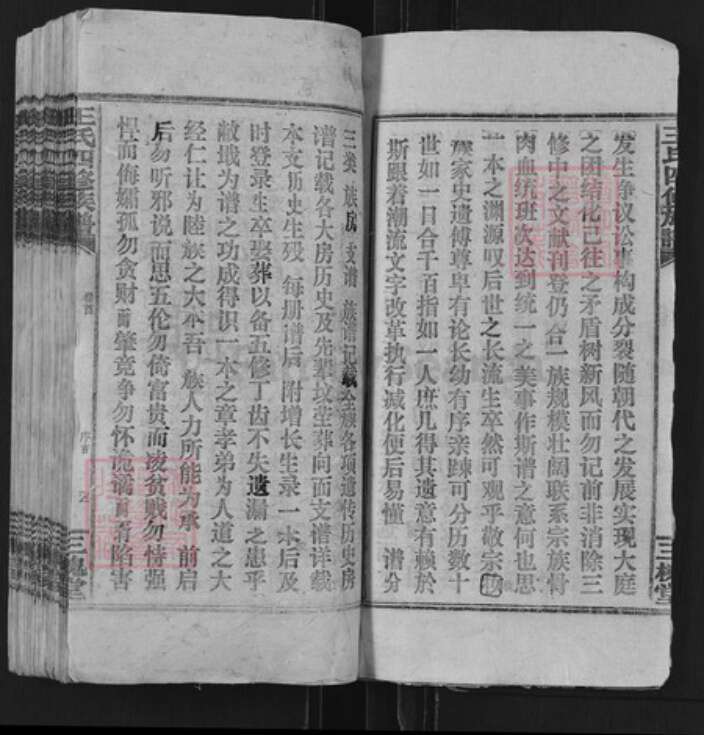 发生争议讼事构成分裂随朝代之发展实现大庭
之团结化已往之矛盾树新风而勿记前非消除三
修中之文献刊登仍合一族规模壮阔联系宗族骨
肉血统班次达到统一之美事作斯谱之意何也思
一本之渊源叹后世之长流生卒然可观乎敬宗
族家史遗传尊卑有论长幼有序亲疎可分历数十
世如一日合千百指如一人庶几得其遗意有赖於
斯跟着潮流文字改革执行减化便后易懂 谱分
三类 族房支谱 族谱记载全族各项遗传历史房
谱记载各大房历史及先辈坟茔葬向面文谱详载
本支历史生殁 每册谱后 附增长生录一本后及
时登录生卒娶葬以备五修丁齿不失遗漏之患乎
敝珴为谱之功成得识一本之章孝弟为人道之大
经仁让为陸族之大本吾 族人力所能为承 前启
后勿听邪说而思五伦勿倚富贵而凌贫贱勿恃强
悍而侮孀孤勿贪财而肇竞争勿怀诡谲而 陷害
王氏四修族譜
卷首
序
三槐堂
王氏四修族譜
三槐堂